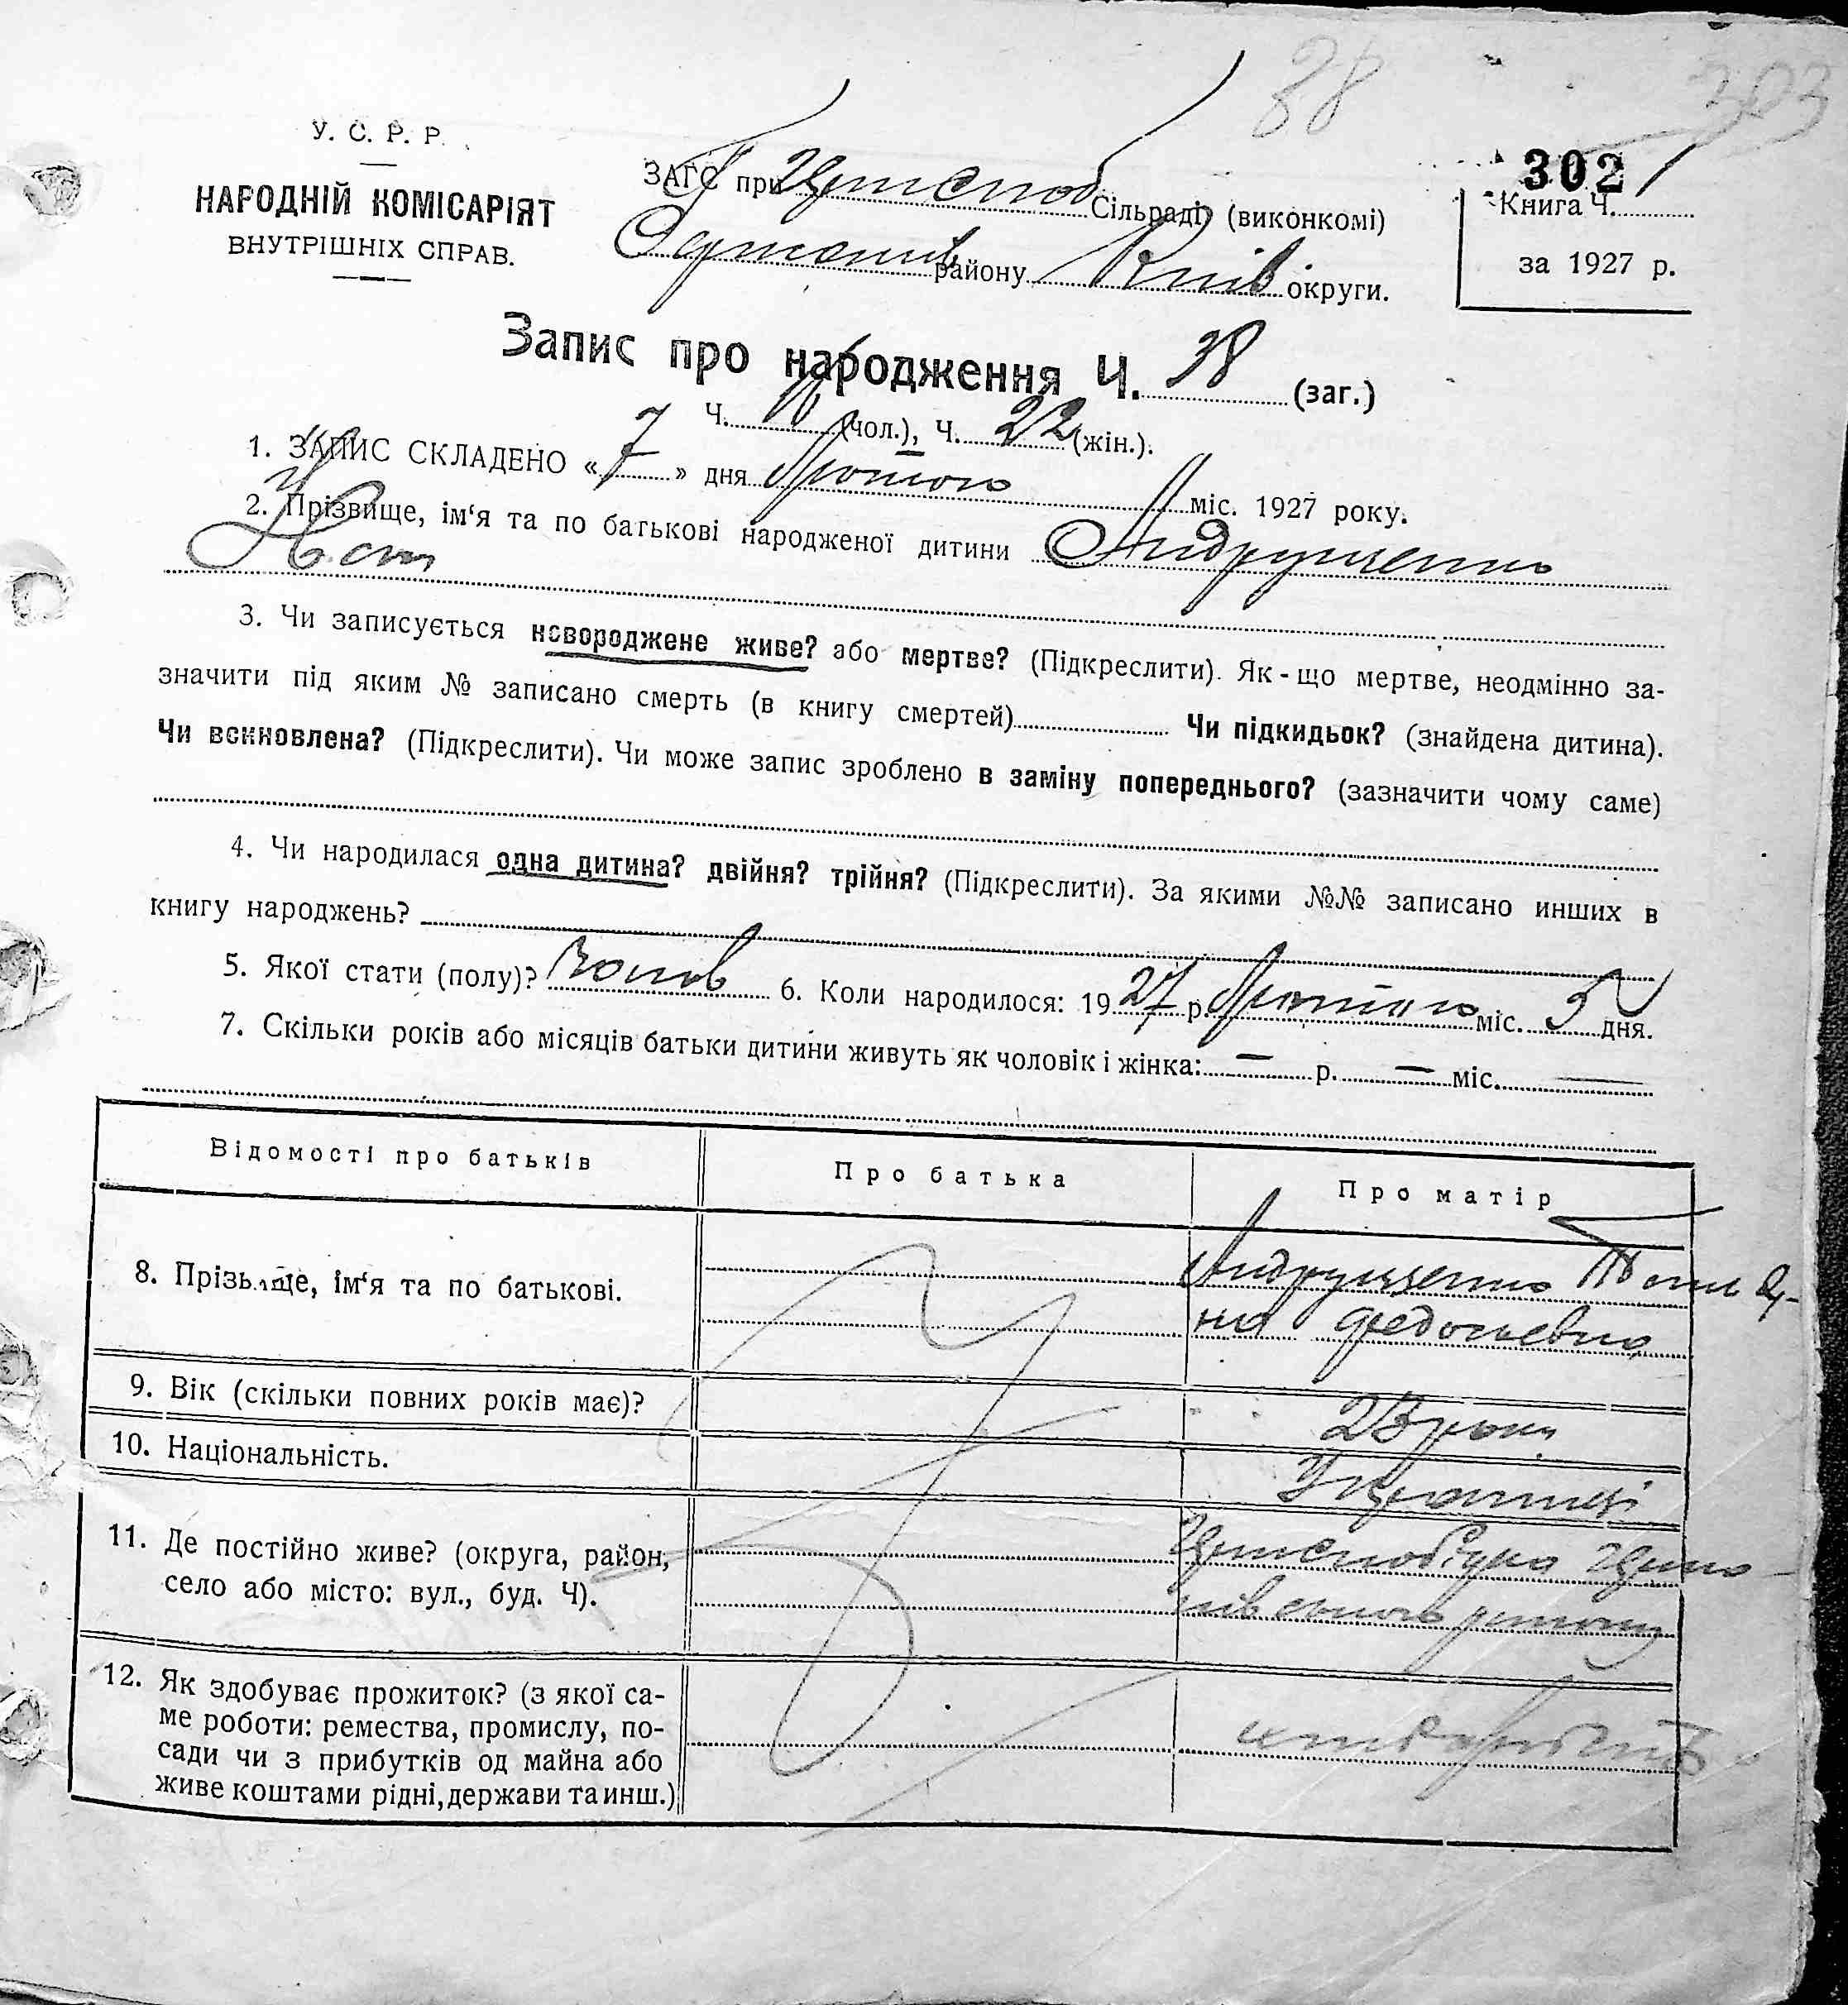 88
303
У. С. Р. Р.
НАРОДНІЙ КОМІСАРІЯТ
ВНУТРІШНІХ СПРАВ.
ЗАГС при Сільраді (виконкомі)
району Київ округи.
302
Книга Ч.
за 1927 р.
Запис про народження Ч. 38 (заг.)
Ч. (чол.), Ч. 22 (жін.).
1. ЗАПИС СКЛАДЕНО « 7 » дня Лютого міс. 1927 року.
2. Прізвище, ім'я та по батькові народженої дитини Андрущенко
3. Чи записується новороджене живе? або мертве? (Підкреслити). Як-що мертве, неодмінно за-
значити під яким № записано смерть (в книгу смертей) Чи підкидьок? (знайдена дитина).
Чи всиновлена? (Підкреслити). Чи може запис зроблено в заміну попереднього? (зазначити чому саме)
4. Чи народилася одна дитина? двійня? трійня? (Підкреслити). За якими №№ записано инших в
книгу народжень?
5. Якої стати (полу)? 6. Коли народилося: 1927 р. Лютого міс. 5 дня.
7. Скільки років або місяців батьки дитини живуть як чоловік і жінка: — р. — міс. —
Відомості про батьків Про батька Про матір
8. Прізвище, ім'я та по батькові. Андрущенко
9. Вік (скільки повних років має)? 23 роки
10. Національність.
11. Де постійно живе? (округа, район,
село або місто: вул., буд. Ч).
12. Як здобуває прожиток? (з якої са-
ме роботи: ремества, промислу, по-
сади чи з прибутків од майна або
живе коштами рідні, держави та инш.)